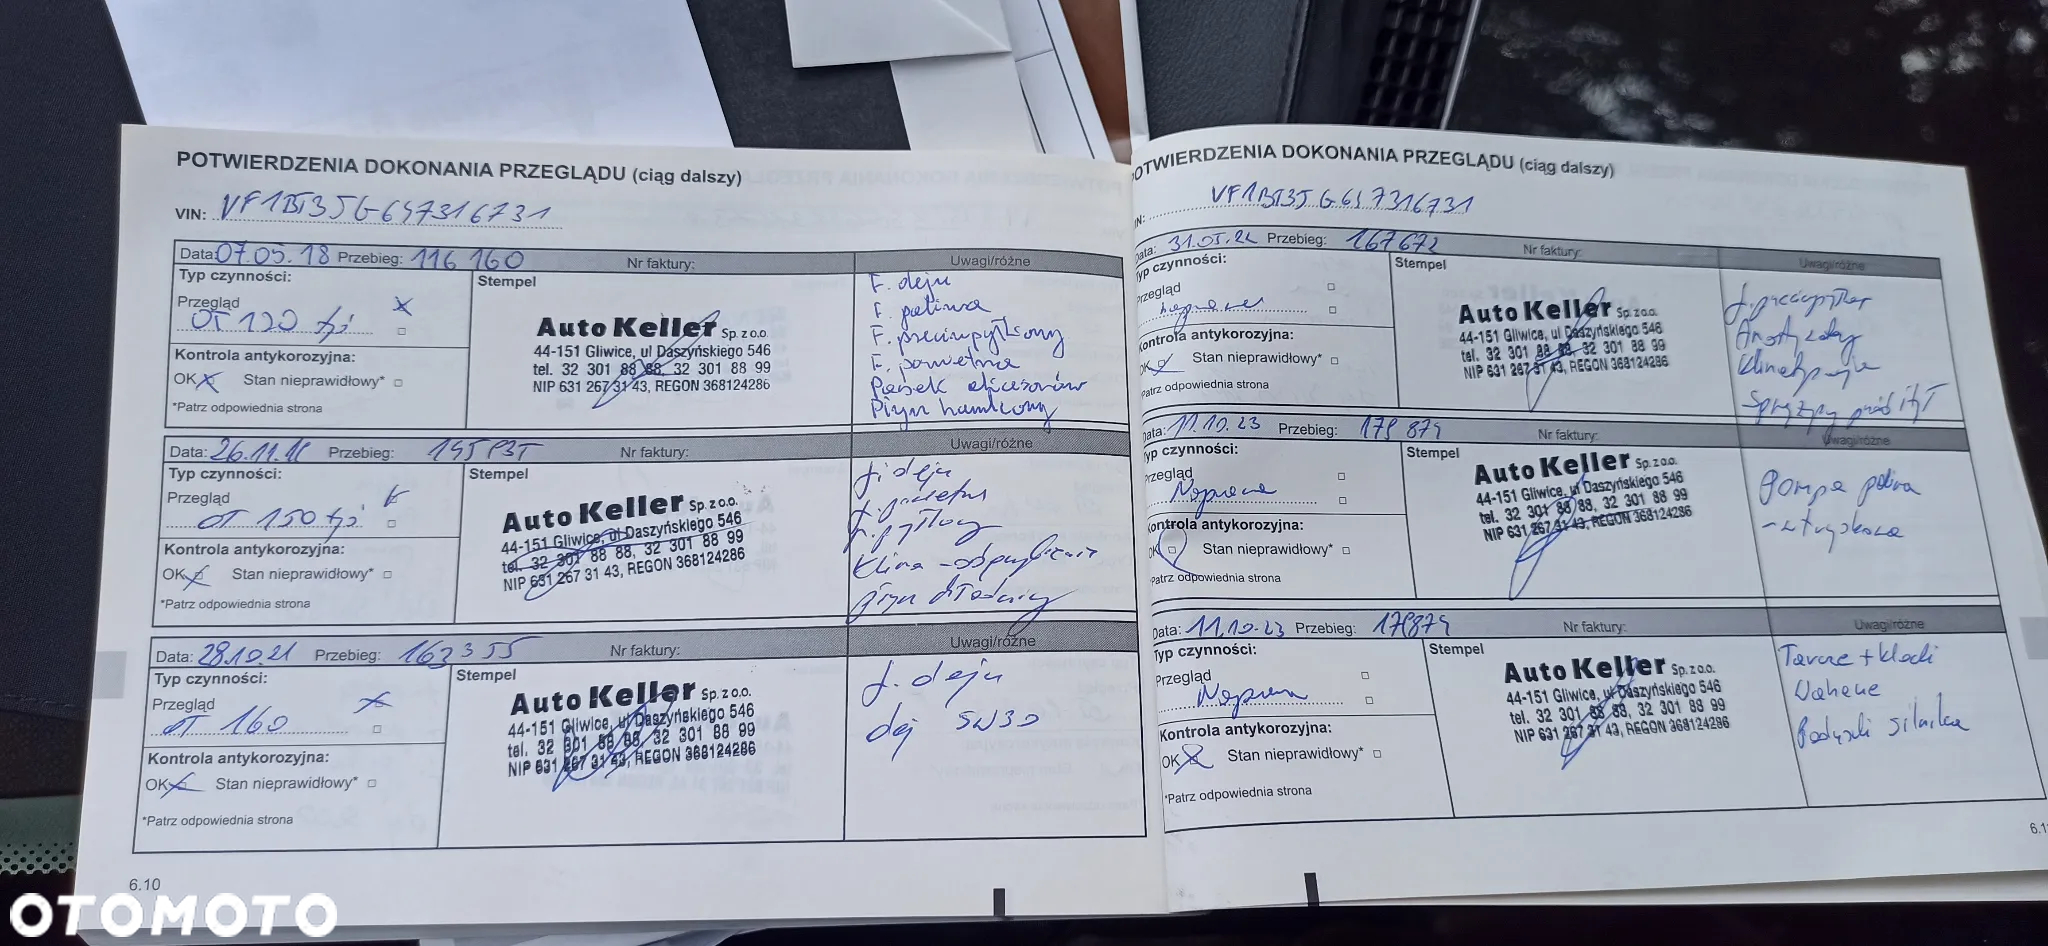 POTWIERDZENIA DOKONANIA PRZEGLĄDU (ciąg dalszy)
VIN: VF1BT3JG647316731
Data: 07.05.18 Przebieg: 116 160 Nr faktury: Uwagi/różne
Typ czynności:
Przegląd
OT 120 tyś
Kontrola antykorozyjna:
OK Stan nieprawidłowy*
*Patrz odpowiednia strona
Stempel
Auto Keller Sp. z o.o.
44-151 Gliwice, ul Daszyńskiego 546
tel. 32 301 88 88, 32 301 88 99
NIP 631 267 31 43, REGON 368124286
F. oleju
F. paliwa
F. przeciwpyłkowy
F. powietrza
Pasek akcesoriów
Płyn hamlcowy
Data: 26.11. Przebieg: Nr faktury: Uwagi/różne
Typ czynności:
Przegląd
OT 150 tyś
Kontrola antykorozyjna:
OK Stan nieprawidłowy*
*Patrz odpowiednia strona
Stempel
Auto Keller Sp. z o.o.
44-151 Gliwice, ul Daszyńskiego 546
tel. 32 301 88 88, 32 301 88 99
NIP 631 267 31 43, REGON 368124286
f. oleju
f. pyłkowy
Klima -
płyn chłodniczy
Data: 28.10.21 Przebieg: 163355 Nr faktury: Uwagi/różne
Typ czynności:
Przegląd
OT 160
Kontrola antykorozyjna:
OK Stan nieprawidłowy*
*Patrz odpowiednia strona
Stempel
Auto Keller Sp. z o.o.
44-151 Gliwice, ul Daszyńskiego 546
tel. 32 301 88 88, 32 301 88 99
NIP 631 267 31 43, REGON 368124286
f. oleju
olej 5W30
6.10
OTWIERDZENIA DOKONANIA PRZEGLĄDU (ciąg dalszy)
IN: VF1BT3JG647316731
Data: 31.05.22 Przebieg: 167672 Nr faktury: Uwagi/różne
Typ czynności:
Przegląd
Naprawa
Kontrola antykorozyjna:
OK Stan nieprawidłowy*
*Patrz odpowiednia strona
Stempel
Auto Keller Sp. z o.o.
44-151 Gliwice, ul Daszyńskiego 546
tel. 32 301 88 88, 32 301 88 99
NIP 631 267 31 43, REGON 368124286
Sprężyny przód
Data: 11.10.23 Przebieg: 179 874 Nr faktury: Uwagi/różne
Typ czynności:
Przegląd
Naprawa
Kontrola antykorozyjna:
OK Stan nieprawidłowy*
*Patrz odpowiednia strona
Stempel
Auto Keller Sp. z o.o.
44-151 Gliwice, ul Daszyńskiego 546
tel. 32 301 88 88, 32 301 88 99
NIP 631 267 31 43, REGON 368124286
Pompa paliwa
- wtryskowa
Data: 11.10.23 Przebieg: 179874 Nr faktury: Uwagi/różne
Typ czynności:
Przegląd
Naprawa
Kontrola antykorozyjna:
OK Stan nieprawidłowy*
*Patrz odpowiednia strona
Stempel
Auto Keller Sp. z o.o.
44-151 Gliwice, ul Daszyńskiego 546
tel. 32 301 88 88, 32 301 88 99
NIP 631 267 31 43, REGON 368124286
Tarcze + klocki
Wahacze
Poduszki silnika
OTOMOTO